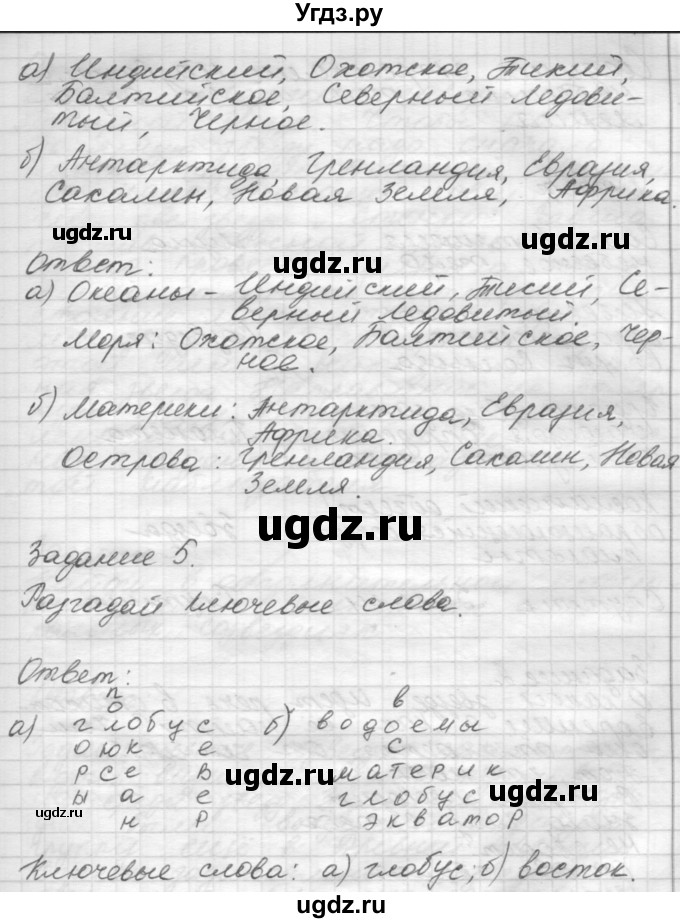 Угдз.ру
а) Индийский, Охотское, Тихий,
Балтийское, Северный Ледови-
тый, Черное.
б) Антарктида, Гренландия, Евразия,
Сахалин, Новая Земля, Африка.
ugdz.ru ugdz.ru
Ответ:
а) Океаны - Индийский, Тихий, Се-
верный Ледовитый.
Моря: Охотское, Балтийское, Чер-
ное.
б) Материки: Антарктида, Евразия,
Африка.
Острова: Гренландия, Сахалин, Новая
Земля.
ugdz.ru
Задание 5.
Разгадай ключевые слова.
Ответ:
п в
о
а) глобус б) водоемы
оюк е с
рсе в материк
ugdz.ru ugdz.ru
ы а е глобус
ugdz.ru
н р экватор
ugdz.ru
Ключевые слова: а) глобус; б) восток.
ugdz.ru ugdz.ru